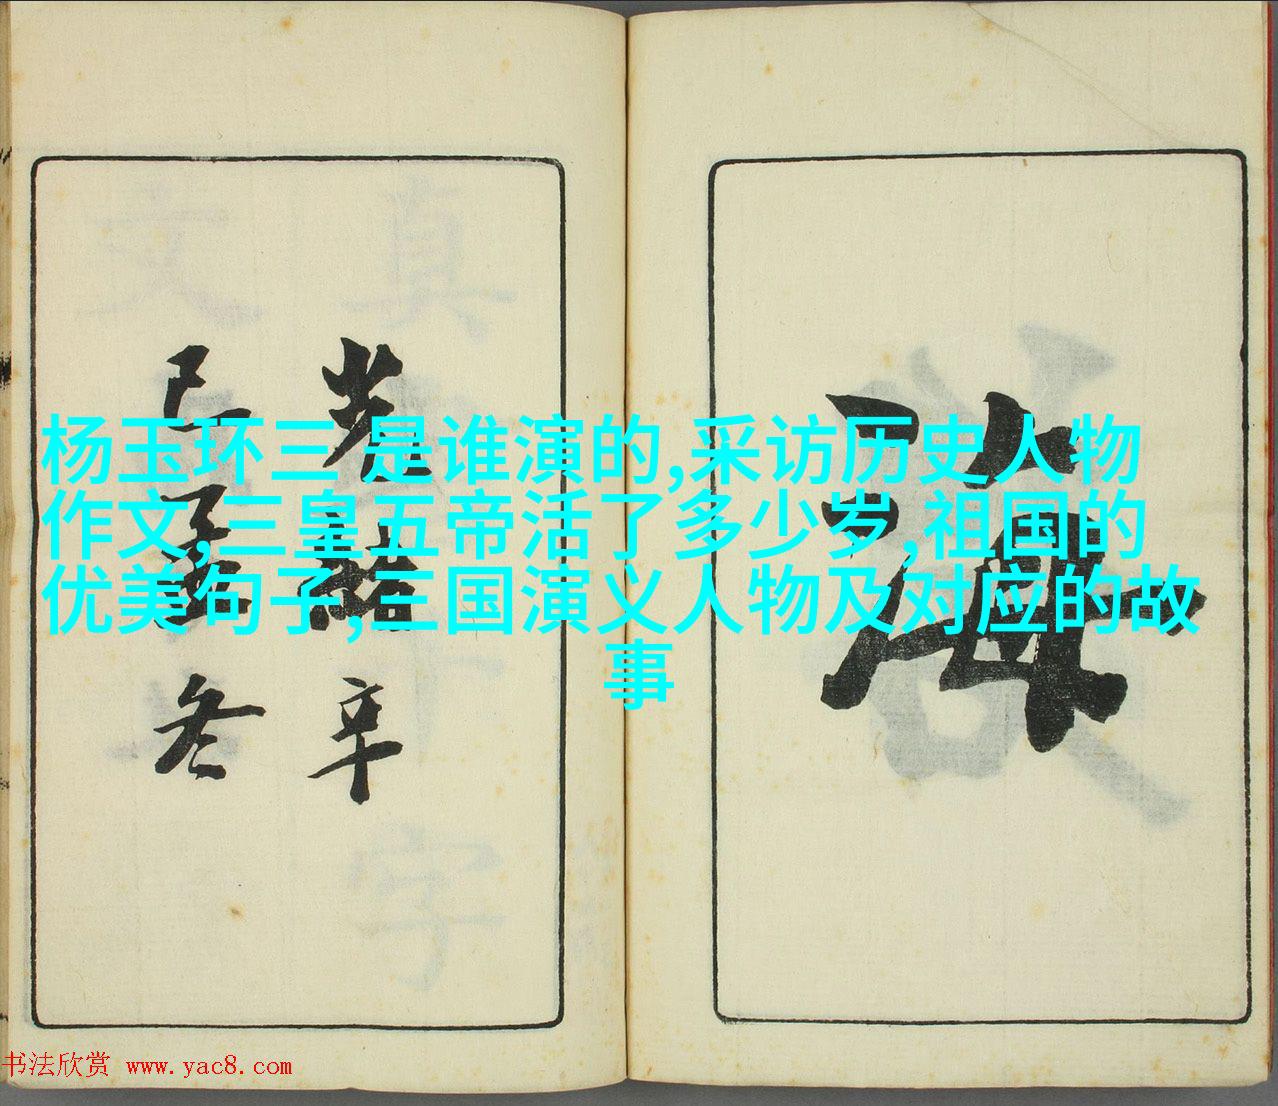 杨玉环三 是谁演的,采访历史人物
作文,三皇五帝活了多少岁,祖国的
优美句子,三国演义人物及对应的故
事
海
光緒辛
巳孟冬
书法欣赏 www.yac8.com